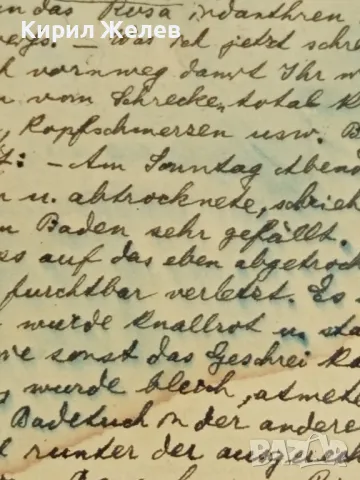 en das Rosa indanthren
Кирил Желев
vergs. – Was ich jetzt schre
ch vornweg damit Ihr n
n vom Schrecken total k
, Kopfschmerzen usw. B
t: – Am Sonntag Abend
n u. abtrocknete, schrieh
m Baden sehr gefällt.
ss auf das eben abgetrock
furchtbar verletzt. Es
wurde knallrot u. sta
wie sonst das Geschrei ka
, wurde bleich, atmete
Badetuch in der andere
t runter der ausgereck
bazar.bg